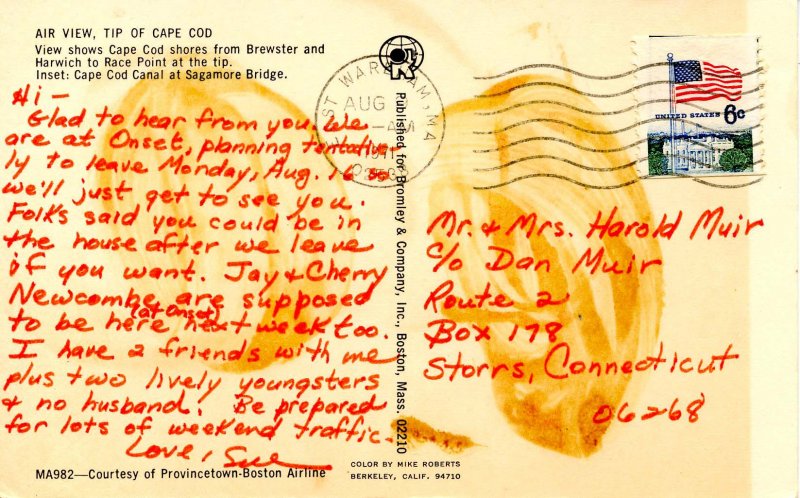 AIR VIEW, TIP OF CAPE COD
View shows Cape Cod shores from Brewster and
Harwich to Race Point at the tip.
Inset: Cape Cod Canal at Sagamore Bridge.
Hi —
Glad to hear from you. We
are at Onset, planning tentative-
ly to leave Monday, Aug. 16 so
we'll just get to see you.
Folks said you could be in
the house after we leave
if you want. Jay & Cherry
Newcombe are supposed
(at Onset)
to be here next week too.
I have 2 friends with me
plus two lively youngsters
& no husband. Be prepared
for lots of weekend traffic.
Love, Sue
MA982—Courtesy of Provincetown-Boston Airline
Published for Bromley & Company, Inc., Boston, Mass. 02210
COLOR BY MIKE ROBERTS
BERKELEY, CALIF. 94710
WAREHAM, MA
AUG
AM
1971
UNITED STATES 6c
Mr. & Mrs. Harold Muir
c/o Dan Muir
Route 2
Box 178
Storrs, Connecticut
06268